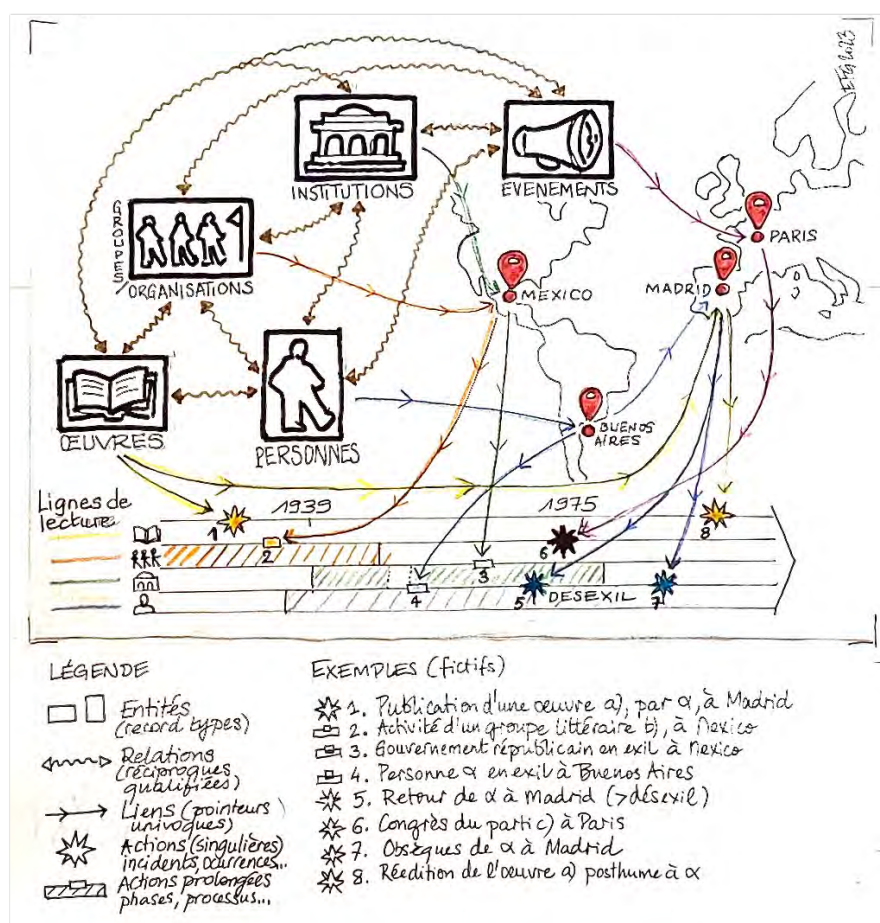 E.Fg 2023
INSTITUTIONS
EVENEMENTS
GROUPES/
ORGANISATIONS
PARIS
MEXICO
MADRID
ŒUVRES
PERSONNES
BUENOS
AIRES
Lignes de
lecture
1939
1975
1
2
3
4
5
6
7
8
DESEXIL
LÉGENDE
Entités
(record types)
Relations
(réciproques
qualifiées)
Liens (pointeurs
univoques)
Actions (singulières)
incidents, ocurrences...
Actions prolongées
phases, processus...
EXEMPLES (fictifs)
1. Publication d'une œuvre a), par α, à Madrid
2. Activité d'un groupe littéraire b), à Mexico
3. Gouvernement républicain en exil à Mexico
4. Personne α en exil à Buenos Aires
5. Retour de α à Madrid (>désexil)
6. Congrès du parti c) à Paris
7. Obsèques de α à Madrid
8. Réedition de l'œuvre a) posthume à α